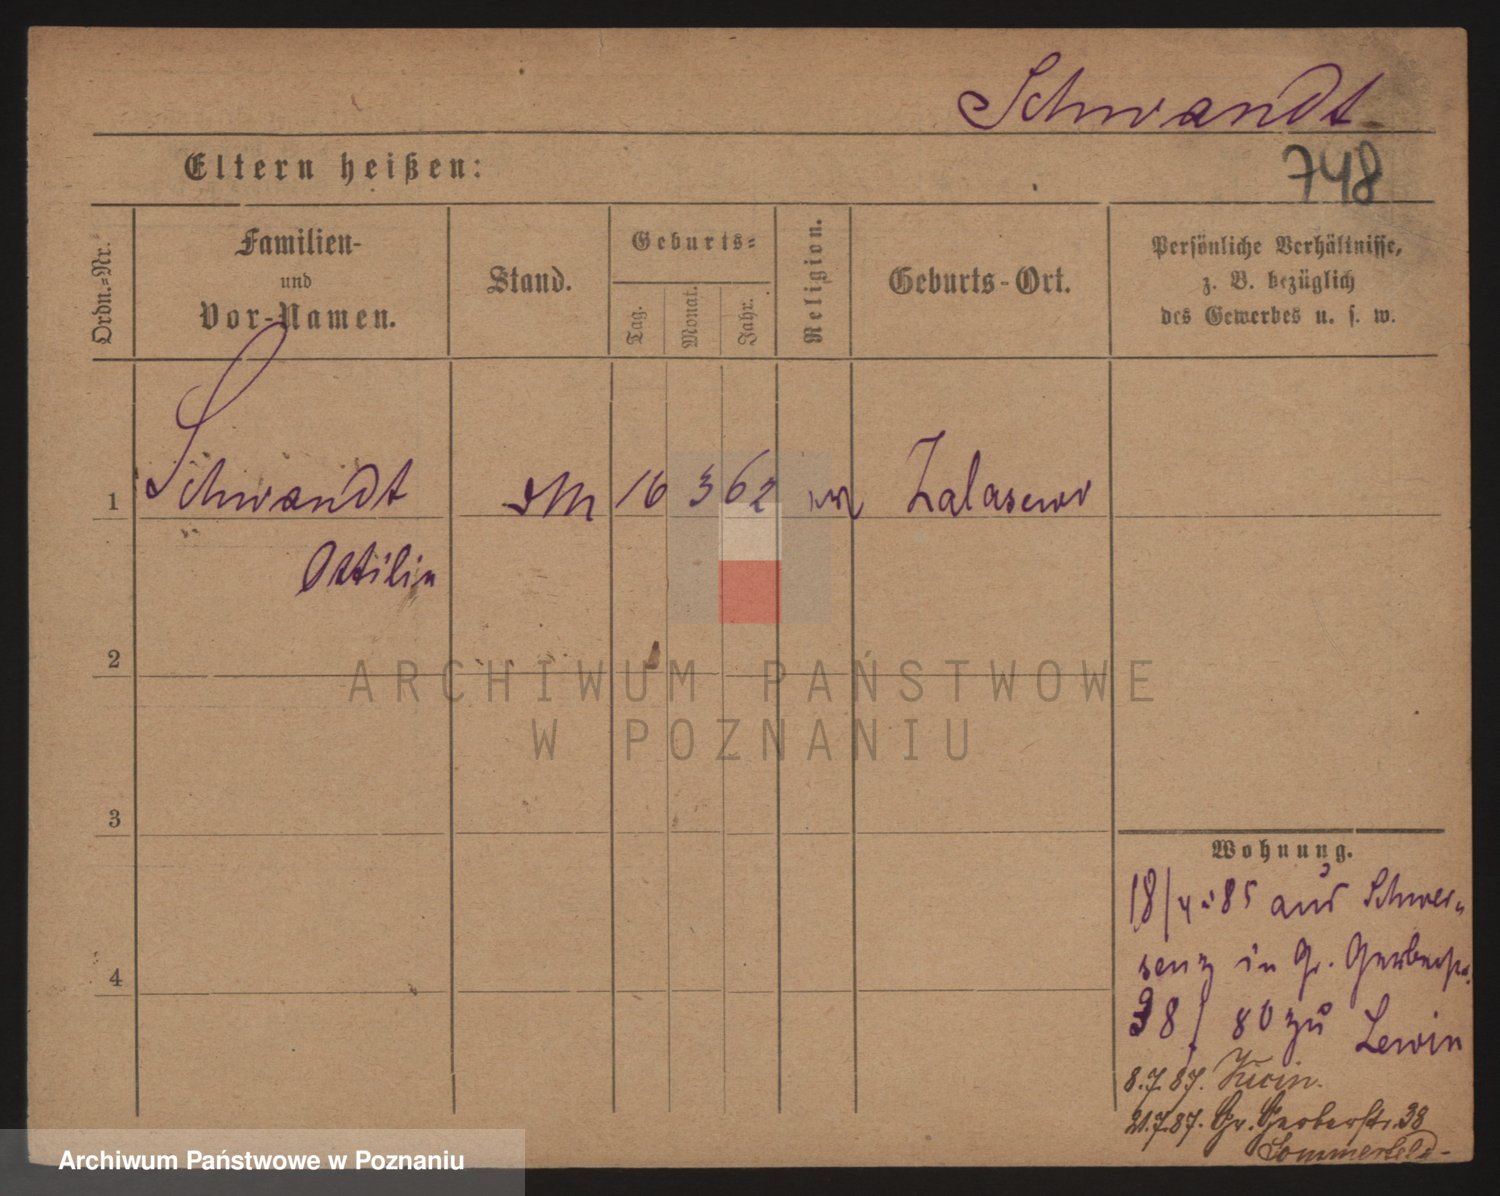 Schwandt
Eltern heißen:
748
Ordn.=Nr.
Familien-
und
Vor-Namen.
Stand.
Geburts=
Tag.
Monat.
Jahr.
Religion.
Geburts-Ort.
Persönliche Verhältnisse,
z. B. bezüglich
des Gewerbes u. s. w.
1
Schwandt
Ottilie
DM
16
3
62
Zalasewo
2
ARCHIWUM PAŃSTWOWE
W POZNANIU
3
4
Wohnung.
18/4.85 aus Schwer=
senz in Gr. Gerberstr.
38/ 80 zu Lewin
8.7.87.
21.7.87. Gr. Gerberstr. 38
Sommerfeld
Archiwum Państwowe w Poznaniu